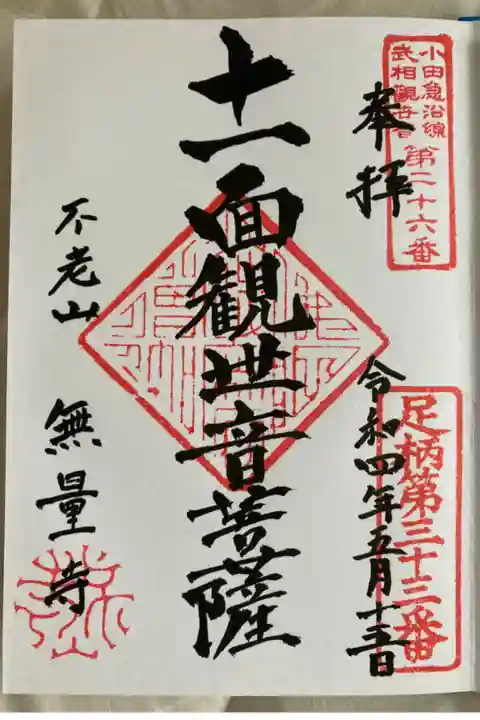 小田急沿線
武相觀世音
第二十六番
奉拝
足柄第三十三番
令和四年五月十五日
十一面観世音菩薩
不老山
無量寺